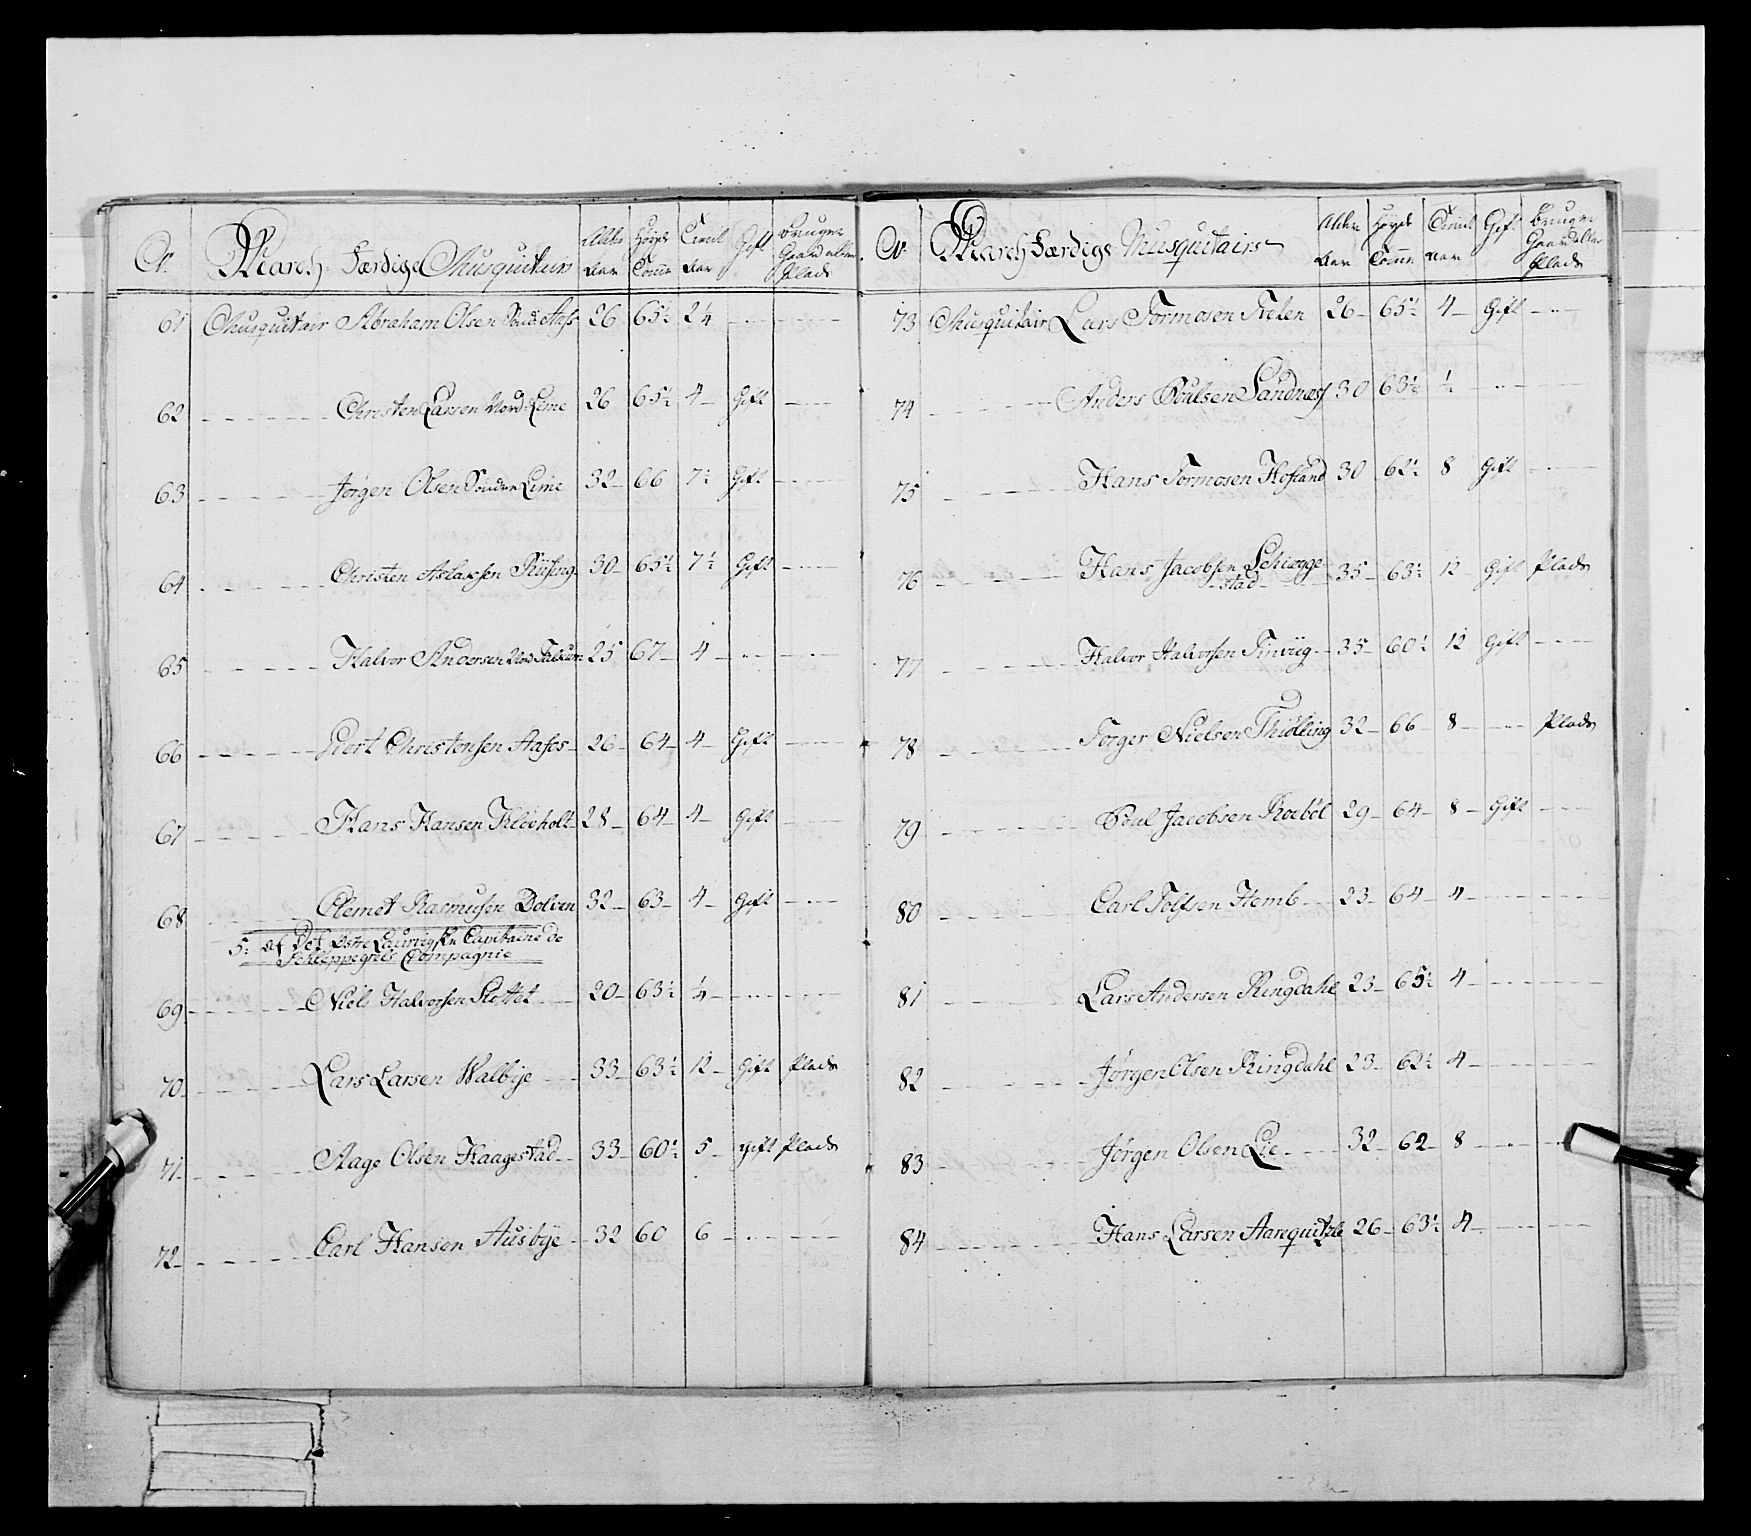 No. March-Færdige Musquitairs Alder Aar Høyde Tomme Tient Aar Gift Bruger Gaard eller Plads
61 Musquitair Abraham Olsen Sønd: Aafs 26 65½ 2¼
62 Christen Larsen Nord-Lime 26 65½ 4 Gift
63 Jørgen Olsen Sønder Lime 32 66 7½ Gift
64 Christen Aslaksen Rüsing 30 65½ 7½ Gift
65 Halvor Andersen Nord 25 67 4
66 Giert Christensen Aasos 26 64 4 Gift
67 Hans Hansen Kleivholt 28 64 4 Gift
68 Clemet Rasmusen Dolven 32 63 4 Gift
5: af Det Laurvigske Capitaine de
Schleppegrels Compagnie
69 Niels Halvorsen Slettet 20 63½ ¼
70 Lars Larsen Walbye 33 63½ 12 Gift Plads
71 Aage Olsen Haagestad 33 60½ 5 gift Plads
72 Carl Hansen Ausbye 32 60 6
No. March Færdige Musquitairs Alder Aar Høyde Tomme Tient Aar Gift Bruger Gaard eller Plads
73 Musquitair Lars Tormosen Freten 26 65½ 4 Gift
74 Anders Poulsen Sandnæs 30 63½ ½
75 Hans Tormosen Hofland 30 62½ 8 Gift
76 Hans Jacobsen Schiægge-
stad 35 63½ 12 Gift Plads
77 Halvor Halvorsen Tinvüg 35 60½ 12 Gift
78 Torger Nielsen Thiølling 32 66 8 Plads
79 Poul Jacobsen Roebøl 29 64 8 Gift
80 Carl Tolfsen Hemb 23 64 4
81 Lars Andersen Ringdahl 23 65½ 4
82 Jørgen Olsen Ringdahl 23 62½ 4
83 Jørgen Olsen Lie 32 62 8
84 Hans Larsen Aarequitzle 26 63½ 4